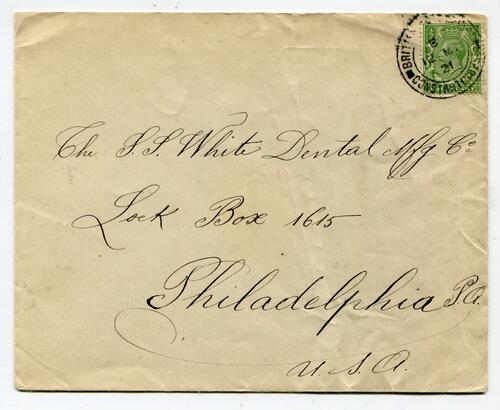 BRITISH
CONSTANTINOPLE
21
The S. S. White Dental Mfg Co
Lock Box 1615
Philadelphia Pa.
U. S. A.